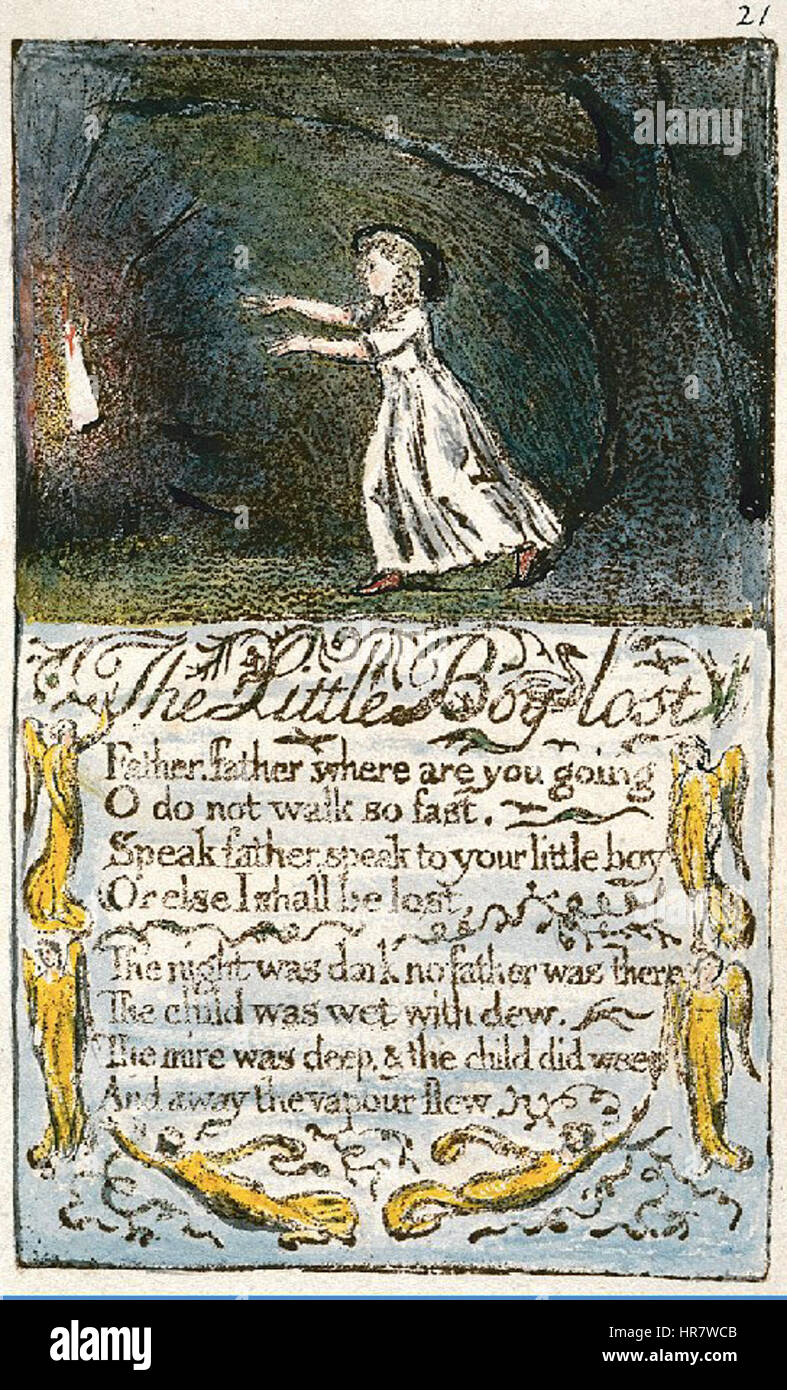 21
The Little Boy lost
Father, father where are you going
O do not walk so fast.
Speak father, speak to your little boy
Or else I shall be lost,
The night was dark no father was there
The child was wet with dew.
The mire was deep, & the child did weep
And away the vapour flew.
alamy stock photo
a
a
a
a
a
alamy stock photo
alamy
HR7WCB
www.alamy.com